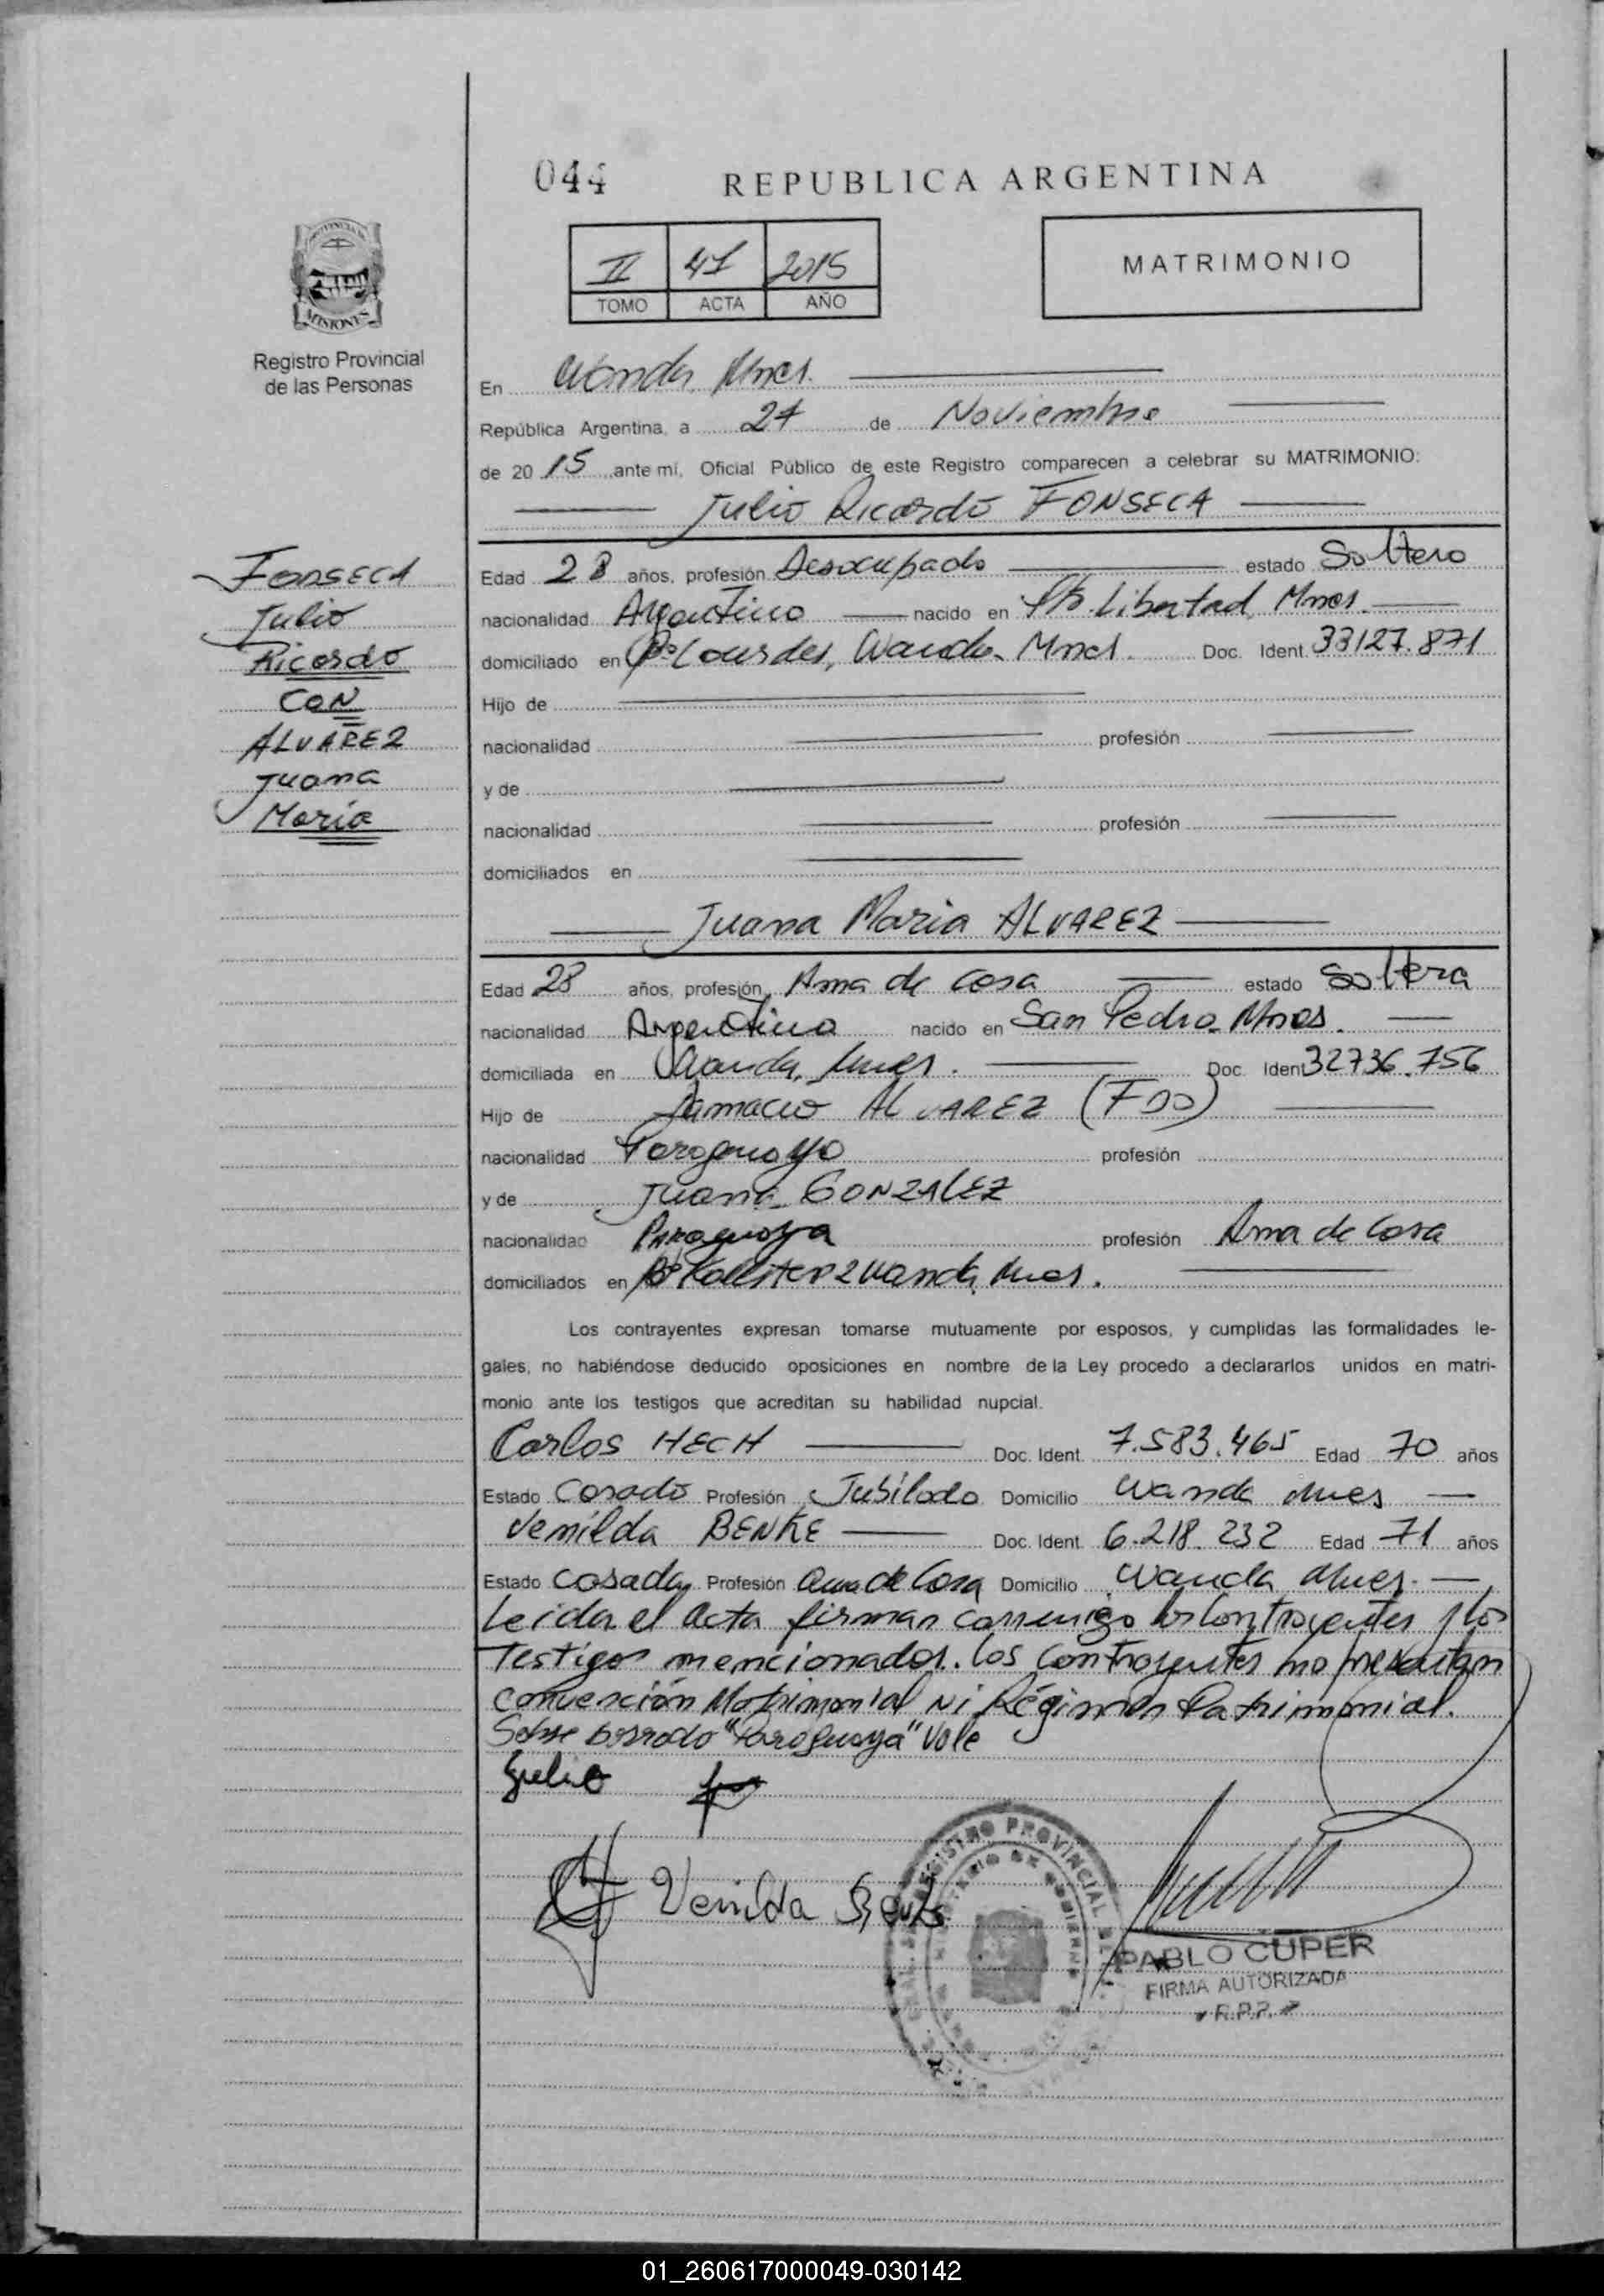 044 REPUBLICA ARGENTINA
II 41 2015
TOMO ACTA AÑO
MATRIMONIO
MISIONES
Registro Provincial
de las Personas
En Wanda, Mnes.
República Argentina, a 27 de Noviembre
de 20 15 ante mi, Oficial Público de este Registro comparecen a celebrar su MATRIMONIO:
Julio Ricardo FONSECA
FONSECA
Julio
Ricardo
CON
ALVAREZ
Juana
María
Edad 28 años, profesión Desocupado estado Soltero
nacionalidad Argentino nacido en Pto. Libertad, Mnes.
domiciliado en Bº Lourdes, Wanda, Mnes. Doc. Ident. 33127.871
Hijo de
nacionalidad profesión
y de
nacionalidad profesión
domiciliados en
Juana Maria ALVAREZ
Edad 28 años, profesión Ama de Casa estado Soltera
nacionalidad Argentina nacido en San Pedro, Mnes.
domiciliada en Wanda, Mnes. Doc. Ident 32736.756
Hijo de ALVAREZ (FDO)
nacionalidad Paraguayo profesión
y de Juana GONZALEZ
nacionalidad Paraguaya profesión Ama de Casa
domiciliados en Bº Wanda, Mnes.
Los contrayentes expresan tomarse mutuamente por esposos, y cumplidas las formalidades le-
gales, no habiéndose deducido oposiciones en nombre de la Ley procedo a declararlos unidos en matri-
monio ante los testigos que acreditan su habilidad nupcial.
Carlos HECH Doc. Ident. 7.583.465 Edad 70 años
Estado Casado Profesión Jubilado Domicilio Wanda Mnes
Venilda BENKE Doc. Ident. 6.218.232 Edad 71 años
Estado Casada Profesión Ama de Casa Domicilio Wanda Mnes.
Leida el acta firman conmigo los Contrayentes y los
Testigos mencionados. Los Contrayentes no presentan
convención Matrimonial Ni Régimen Patrimonial.
Sobre borrado "Paraguaya" Vale
Julio
Venilda Benke
REGISTRO PROVINCIAL
PABLO CUPER
FIRMA AUTORIZADA
R.P.P.
01_260617000049-030142